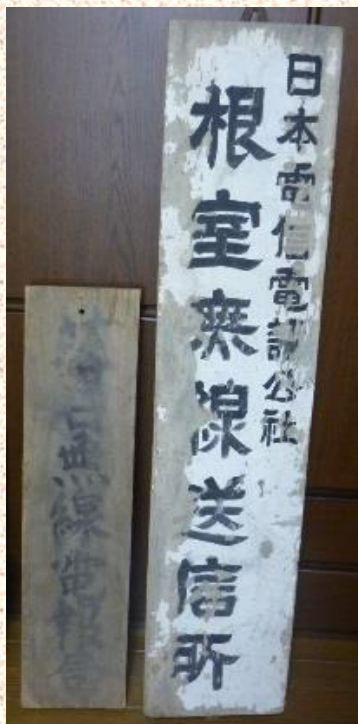 日本電信電話公社
根室無線送信所
落石無線電報局